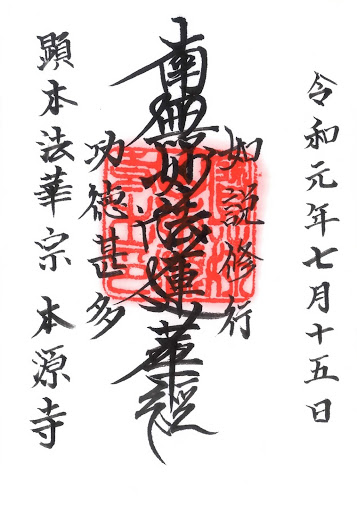 令和元年七月十五日
如説修行
南無妙法蓮華經
功徳甚多
顕本法華宗 本源寺